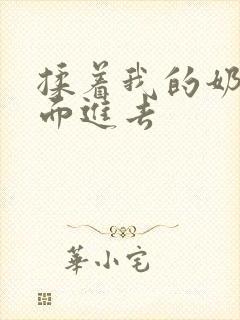 揉着我的奶
而進去
華小宅